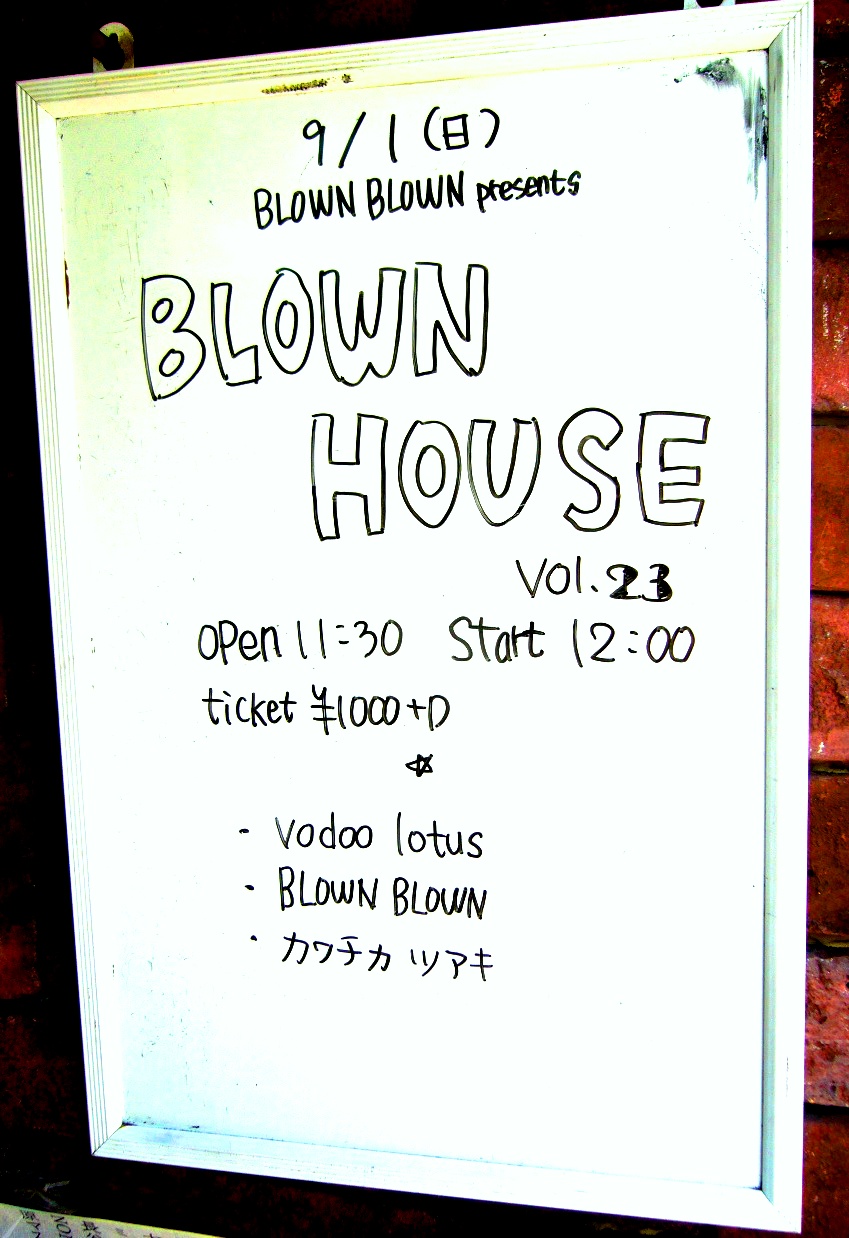 9/1(日)
BLOWN BLOWN presents
BLOWN
HOUSE
Vol.23
open 11:30 Start 12:00
ticket ¥1000+D
☆
・Vodoo lotus
・BLOWN BLOWN
・カワチカツアキ